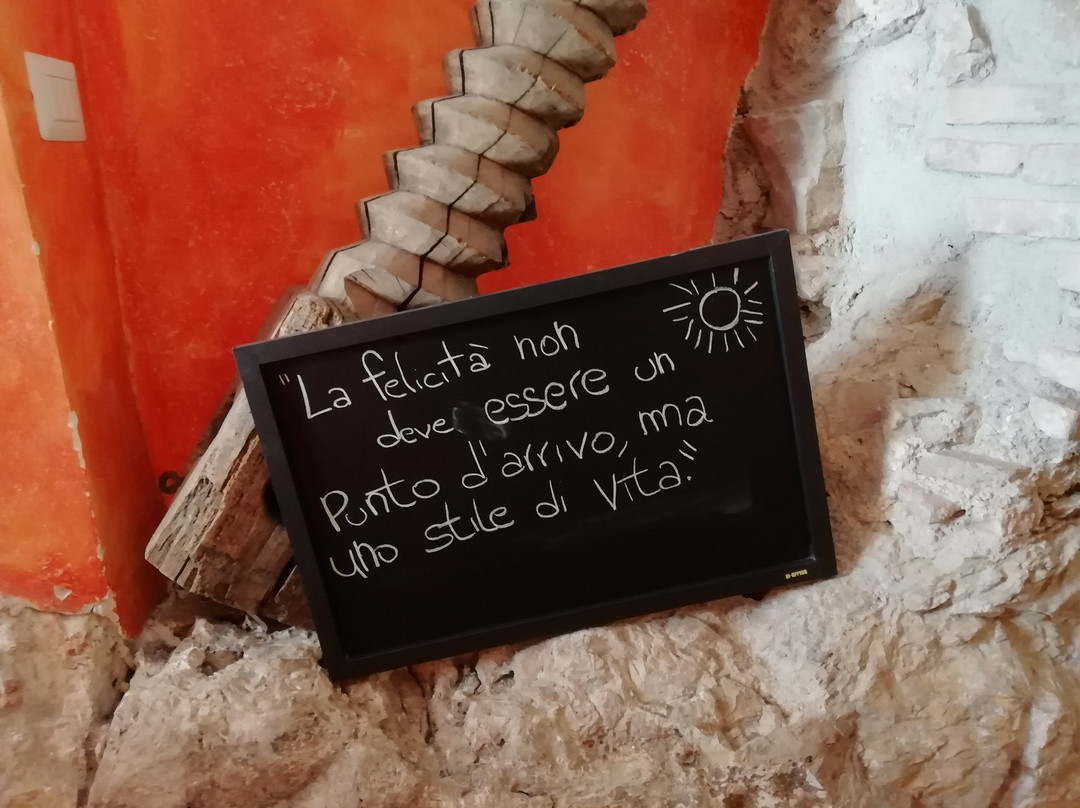 "La felicità non
deve essere un
Punto d'arrivo, ma
uno stile di Vita."